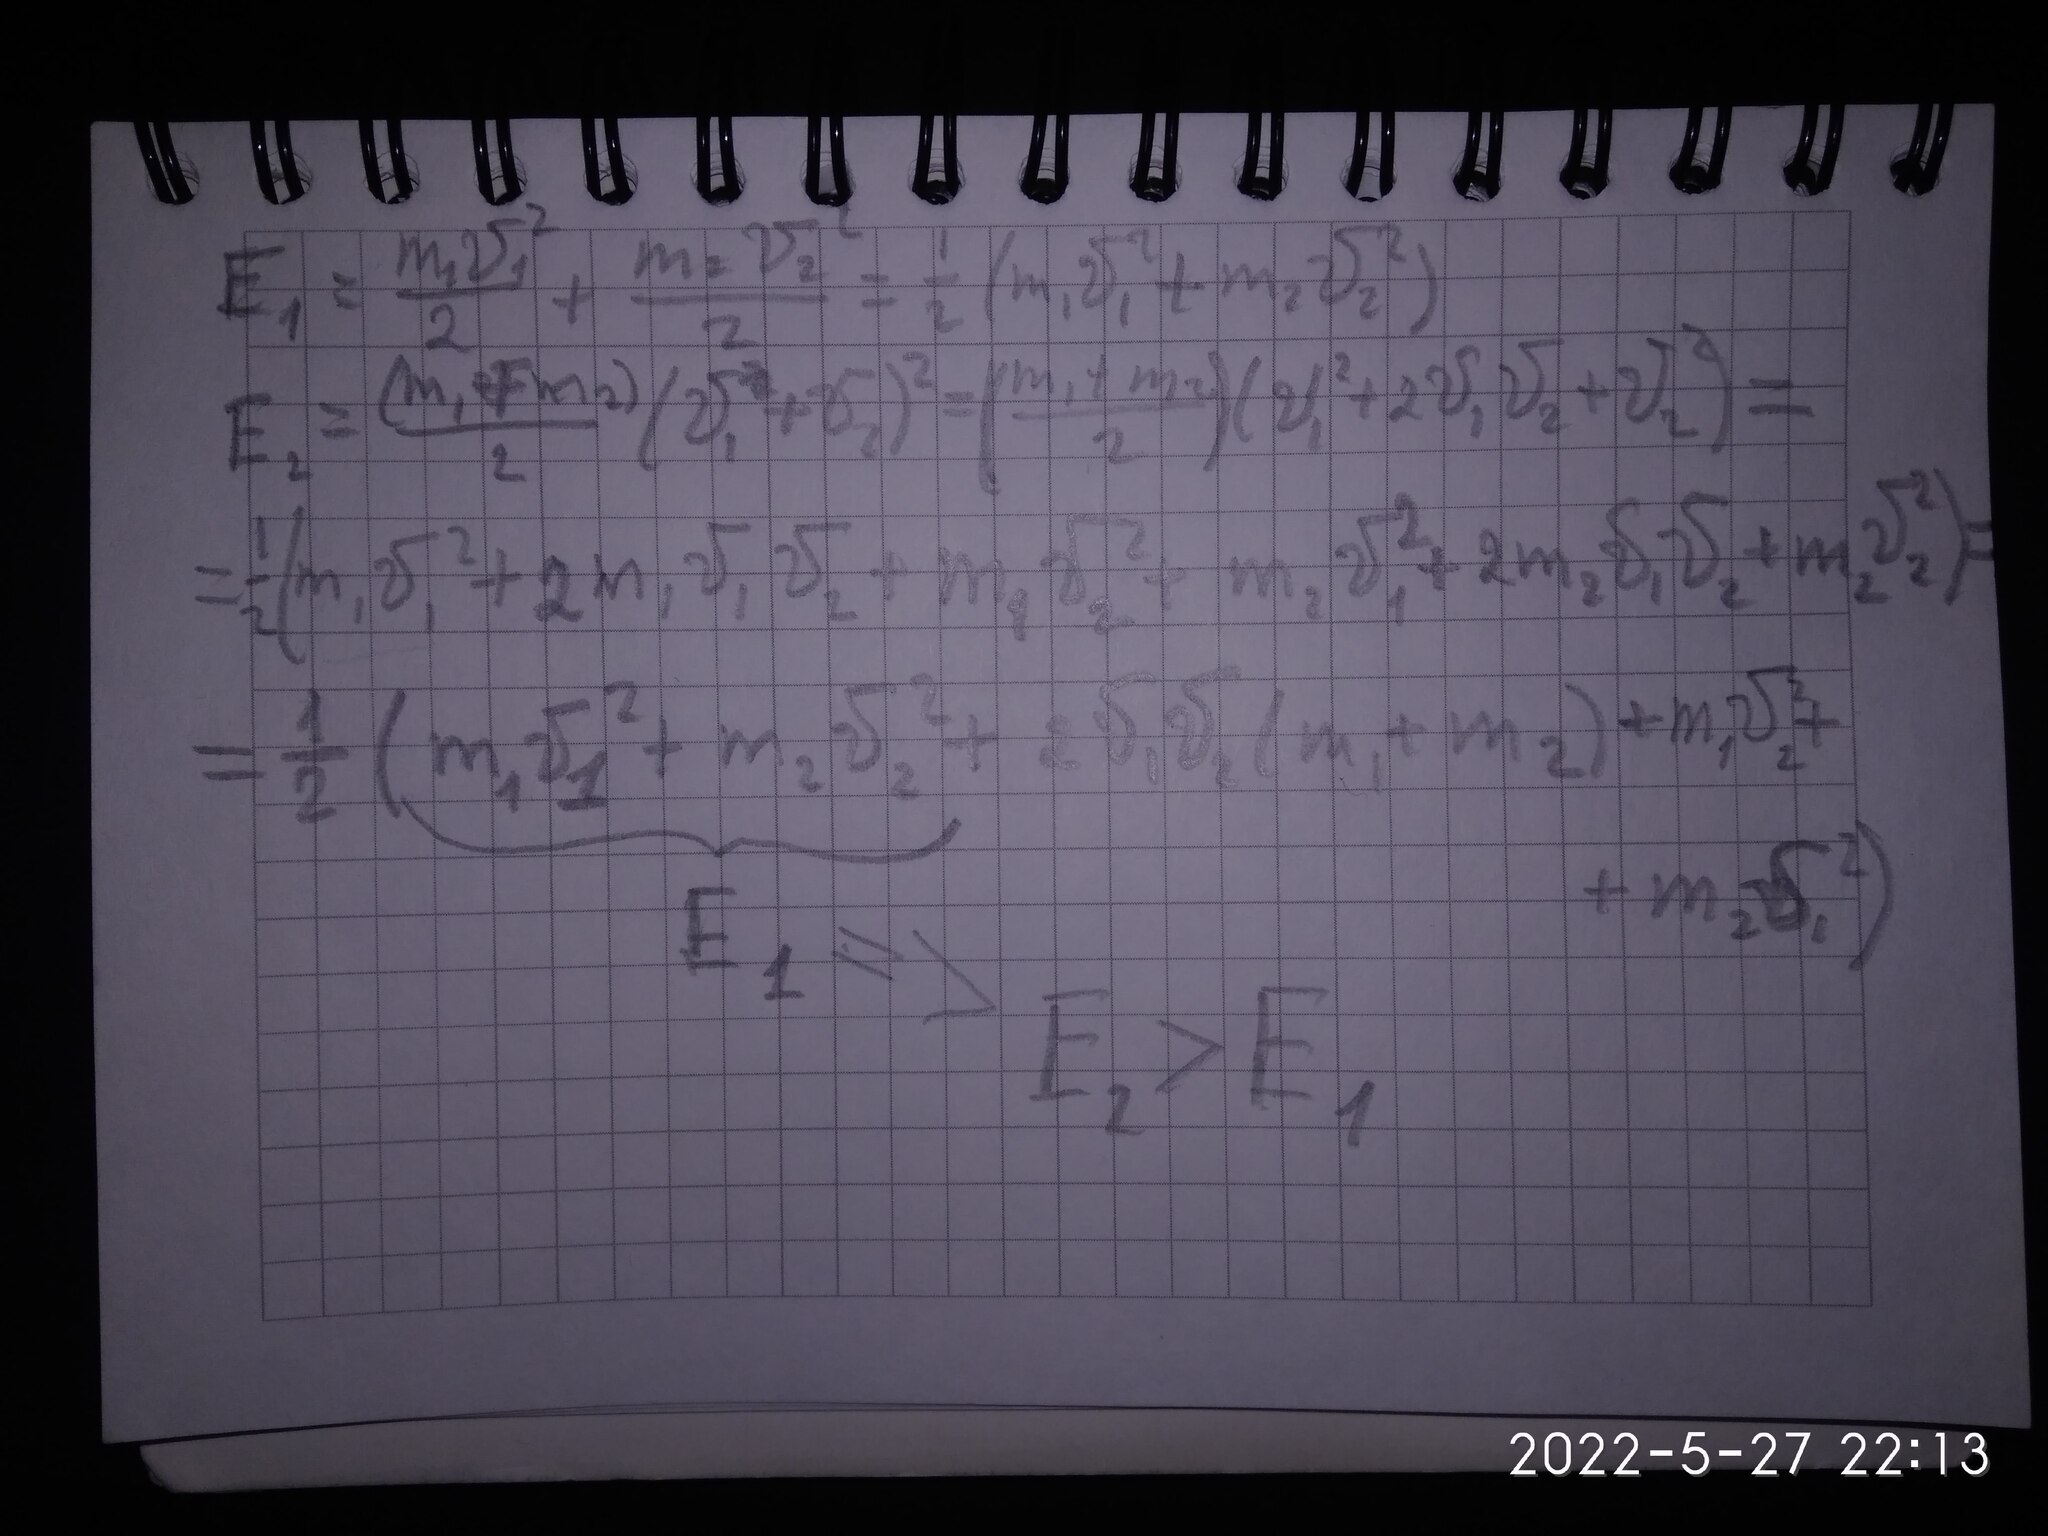 E₁ = m₁v₁²/2 + m₂v₂²/2 = 1/2 (m₁v₁² + m₂v₂²)
E₂ = (m₁+m₂)/2 (v₁+v₂)² = (m₁+m₂/2)(v₁²+2v₁v₂+v₂²) =
= 1/2 (m₁v₁² + 2m₁v₁v₂ + m₁v₂² + m₂v₁² + 2m₂v₁v₂ + m₂v₂²) =
= 1/2 (m₁v₁² + m₂v₂² + 2v₁v₂(m₁+m₂) + m₁v₂² +
+ m₂v₁²)
E₁ =>
E₂ > E₁
2022-5-27 22:13